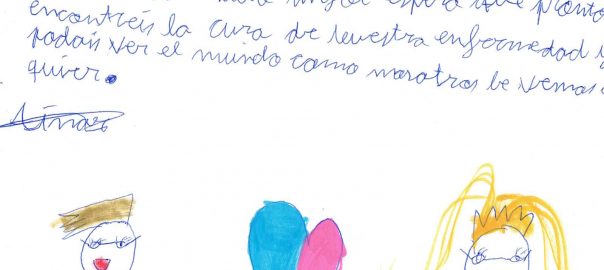 espero que pronto
encontréis la cura de vuestra enfermedad y
podais ver el mundo como nosotros le vemos
quiver.